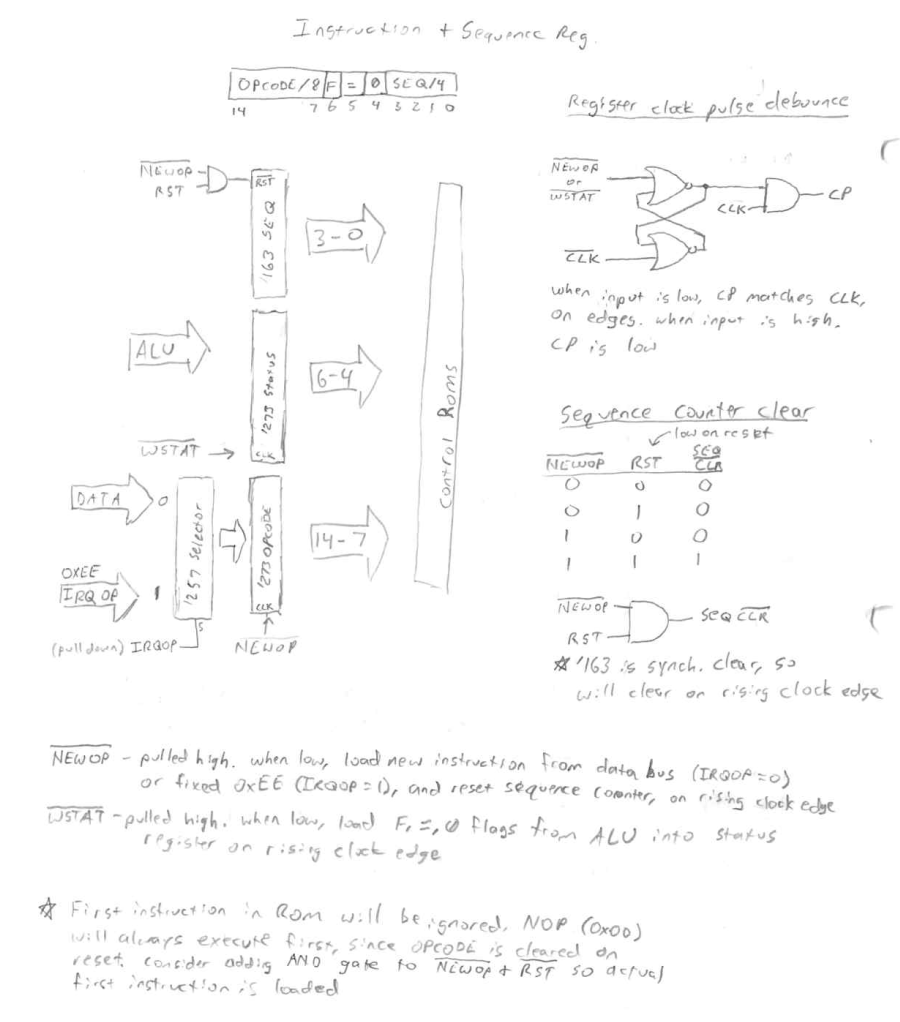 Instruction + Sequence Reg.
OPCODE/8 F = 0 SEQ/4
14 7 6 5 4 3 2 1 0
NEWOP
RST
RST
'163 SEQ
3-0
ALU
'273 Status
CLK
WSTAT
6-4
DATA
0
0XEE
IRQ OP
1
'257 Selector
S
(pull down) IRQOP
'273 OPCODE
CLK
NEWOP
14-7
Control Roms
Register clock pulse debounce
NEWOP
or
WSTAT
CLK
CP
CLK
when input is low, CP matches CLK,
on edges. when input is high.
CP is low
Sequence Counter clear
low on reset
NEWOP RST SEQ CLR
0 0 0
0 1 0
1 0 0
1 1 1
NEWOP
RST
SEQ CLR
☆ '163 is synch. clear, so
will clear on rising clock edge
NEWOP - pulled high. when low, load new instruction from data bus (IRQOP=0)
or fixed 0xEE (IRQOP=1), and reset sequence counter, on rising clock edge
WSTAT - pulled high. when low, load F, =, 0 flags from ALU into status
register on rising clock edge
☆ First instruction in Rom will be ignored, NOP (0x00)
will always execute first, since OPCODE is cleared on
reset. consider adding AND gate to NEWOP + RST so actual
first instruction is loaded